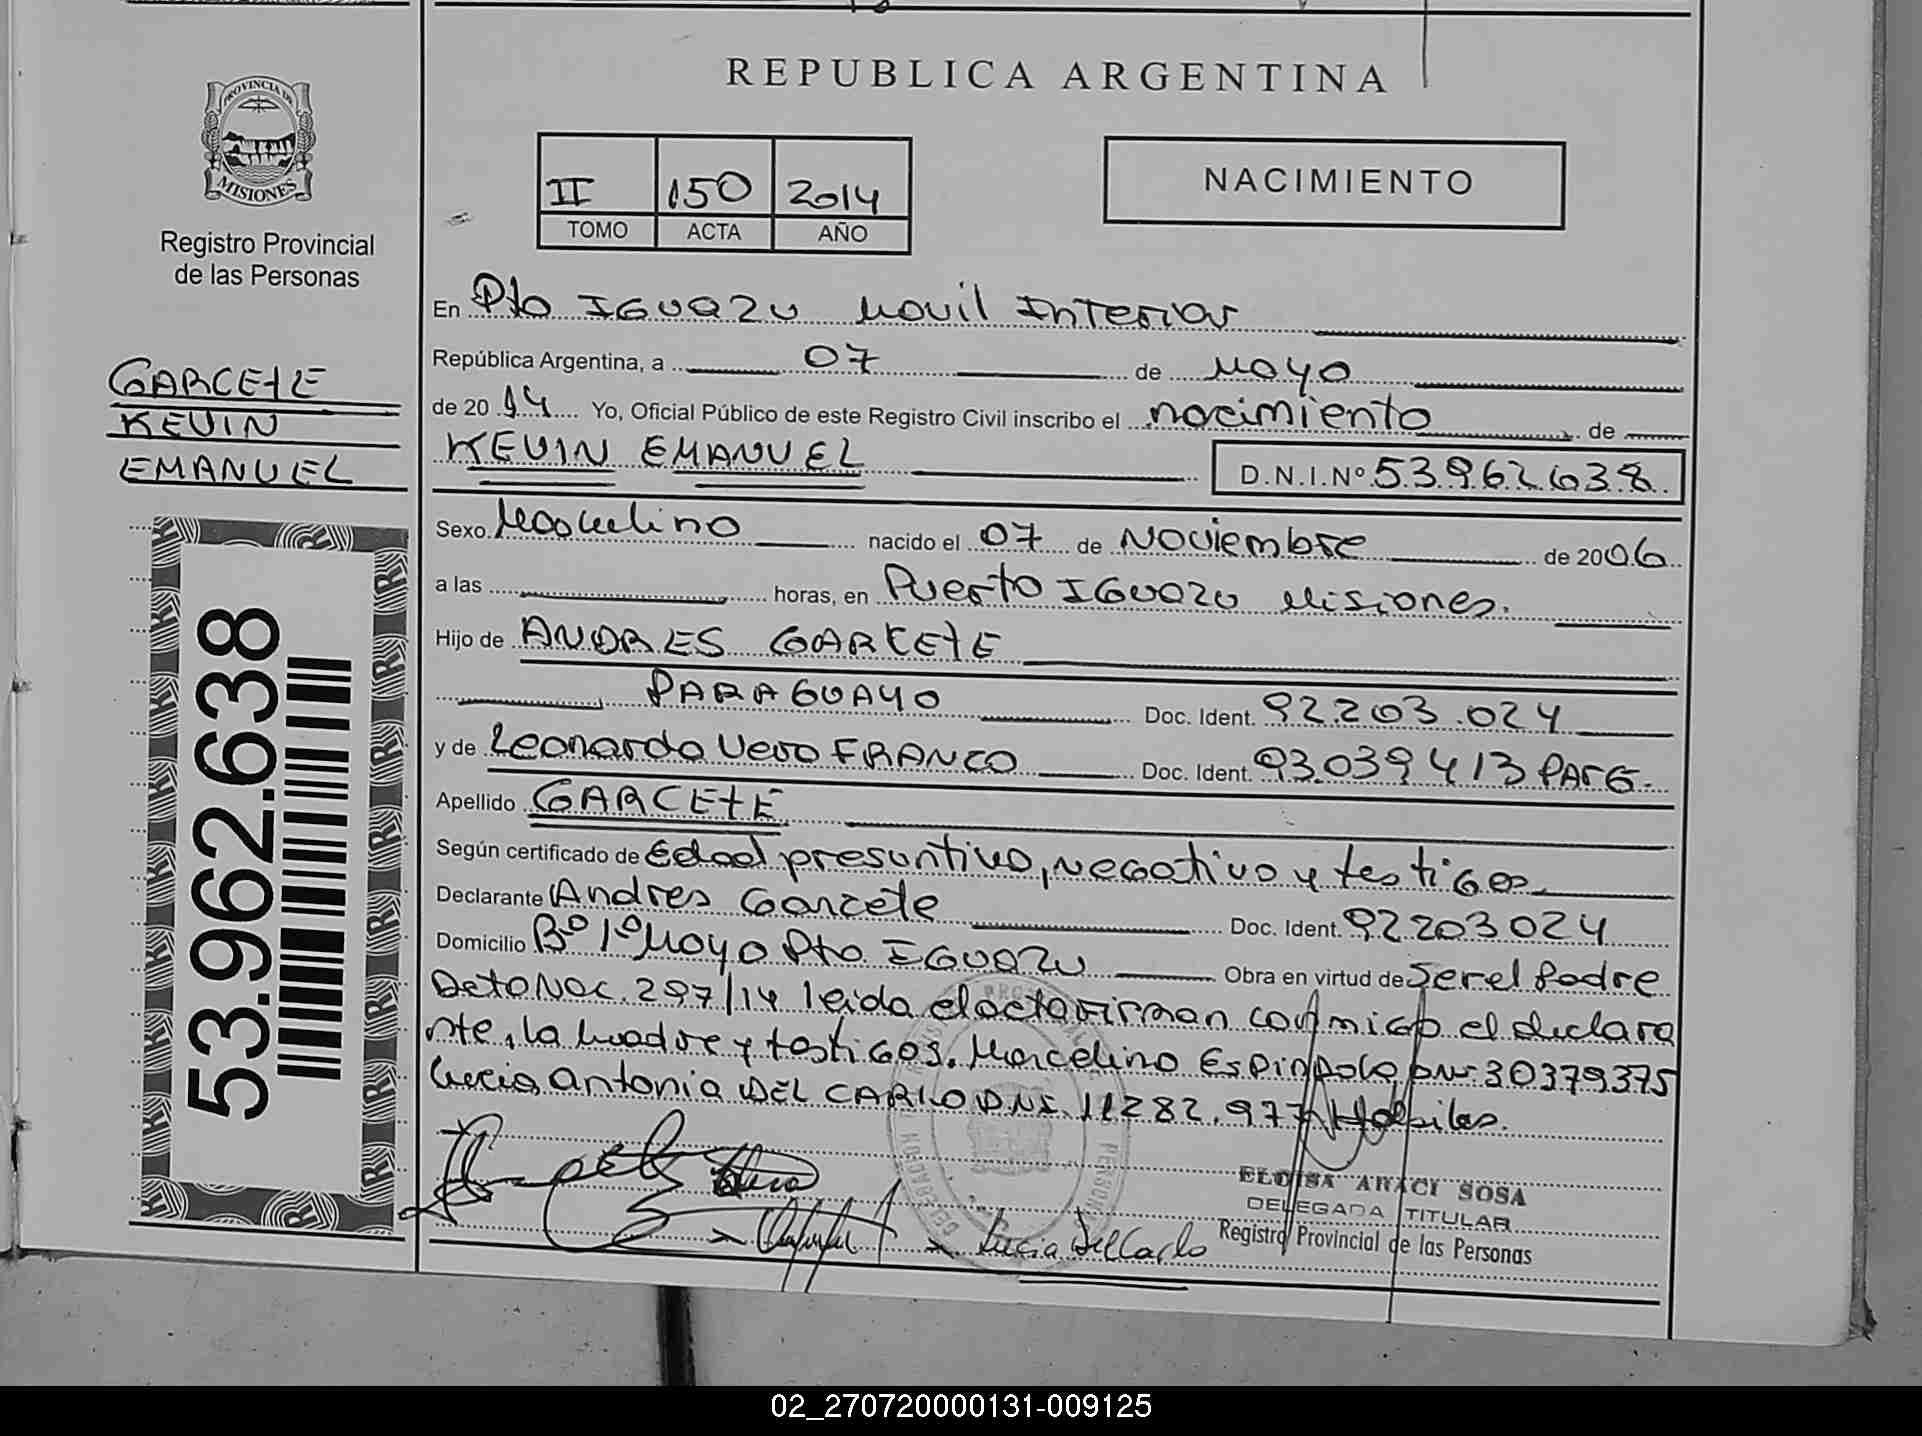 REPUBLICA ARGENTINA
PROVINCIA DE
MISIONES
Registro Provincial
de las Personas
II 150 2014
TOMO ACTA AÑO
NACIMIENTO
GARCETE
KEVIN
EMANUEL
53.962.638
En Pto IGUAZU Movil Interior
República Argentina, a 07 de Mayo
de 2014 Yo, Oficial Público de este Registro Civil inscribo el nacimiento de
KEVIN EMANUEL D.N.I.Nº 53962638
Sexo Masculino nacido el 07 de Noviembre de 2006
a las horas, en Puerto IGUAZU Misiones.
Hijo de ANDRES GARCETE
PARAGUAYO Doc. Ident. 92.203.024
y de Leonarda Vero FRANCO Doc. Ident. 93.039413 PARG.
Apellido GARCETE
Según certificado de Edad presuntiva, negativo y testigos
Declarante Andres Garcete Doc. Ident. 92203024
Domicilio Bº 1º Mayo Pto IGUAZU Obra en virtud de Ser el Padre
Dcto Nac. 297/14 leida el acta firman conmigo el declara
nte, la madre y testigos. Marcelino Espindola DNI 30379375
Lucia Antonia DEL CARLO DNI. 11282.977 Habiles.
Lucia DelCarlo
ELOISA ARACI SOSA
DELEGADA TITULAR
Registro Provincial de las Personas
02_270720000131-009125